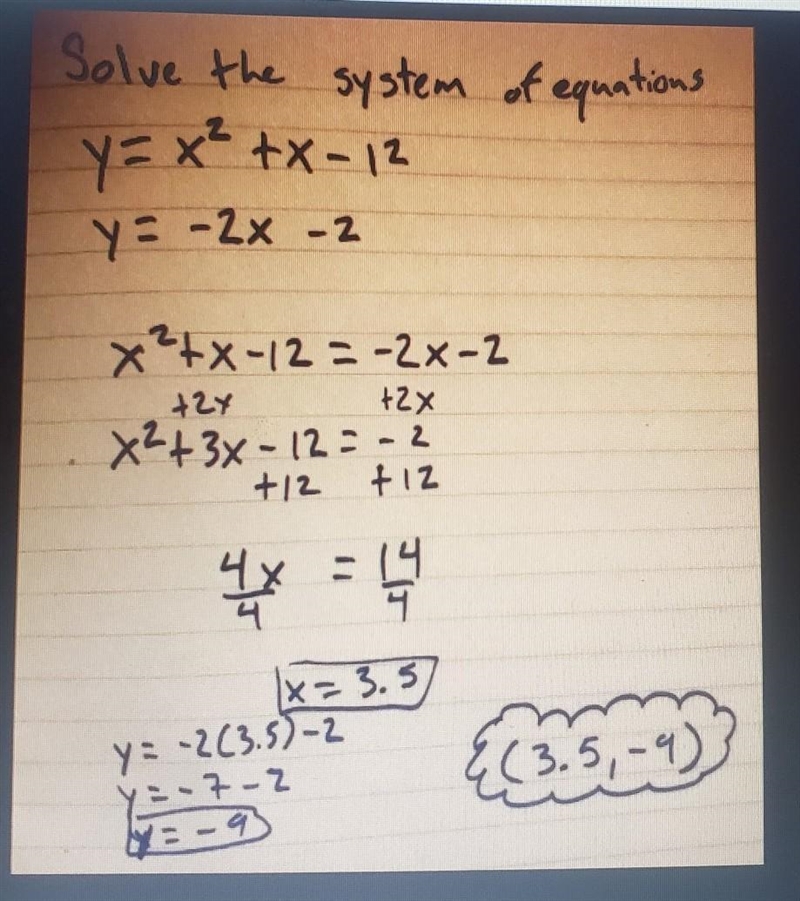 Solve the system of equations
y = x² + x - 12
y = -2x - 2
x² + x - 12 = -2x - 2
+2x +2x
x² + 3x - 12 = - 2
+12 +12
4x/4 = 14/4
x = 3.5
y = -2(3.5) - 2
y = - 7 - 2
y = - 9
(3.5, -9)